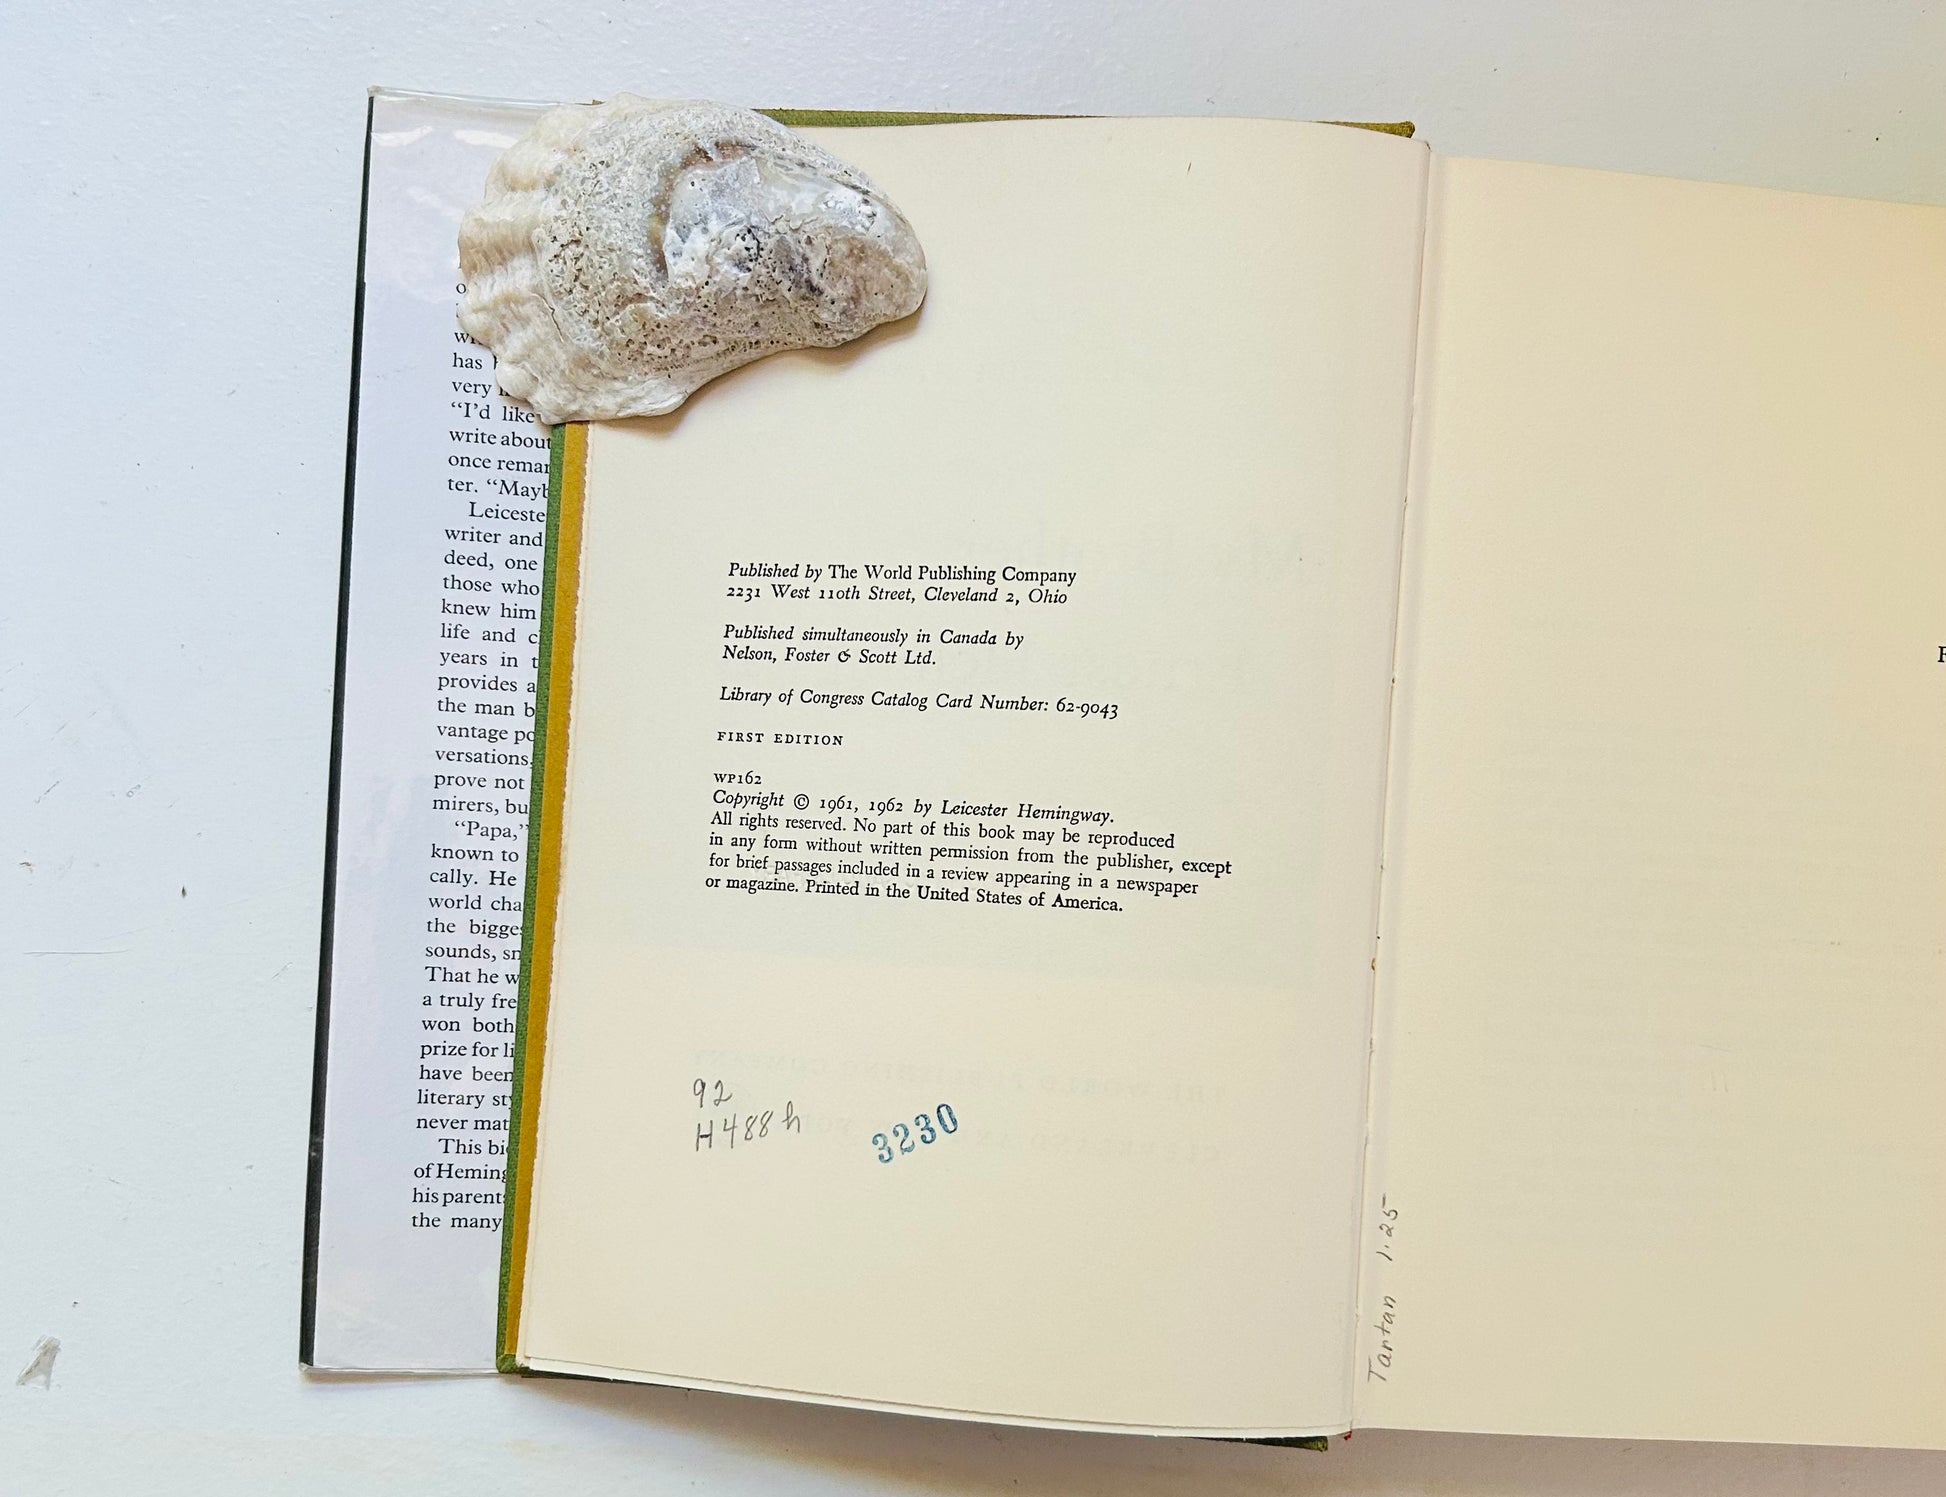 has
very
“I'd like
write about
once remar
ter. “Mayb
Leiceste
writer and
deed, one
those who
knew him
life and c
years in t
provides a
the man b
vantage po
versations,
prove not
mirers, bu
“Papa,”
known to
cally. He
world cha
the bigges
sounds, sn
That he w
a truly fre
won both
prize for li
have been
literary sty
never mat
This bi
of Heming
his parents
the many
Published by The World Publishing Company
2231 West 110th Street, Cleveland 2, Ohio
Published simultaneously in Canada by
Nelson, Foster & Scott Ltd.
Library of Congress Catalog Card Number: 62-9043
FIRST EDITION
WP162
Copyright © 1961, 1962 by Leicester Hemingway.
All rights reserved. No part of this book may be reproduced
in any form without written permission from the publisher, except
for brief passages included in a review appearing in a newspaper
or magazine. Printed in the United States of America.
92
H488h
3230
Tartan 1.25